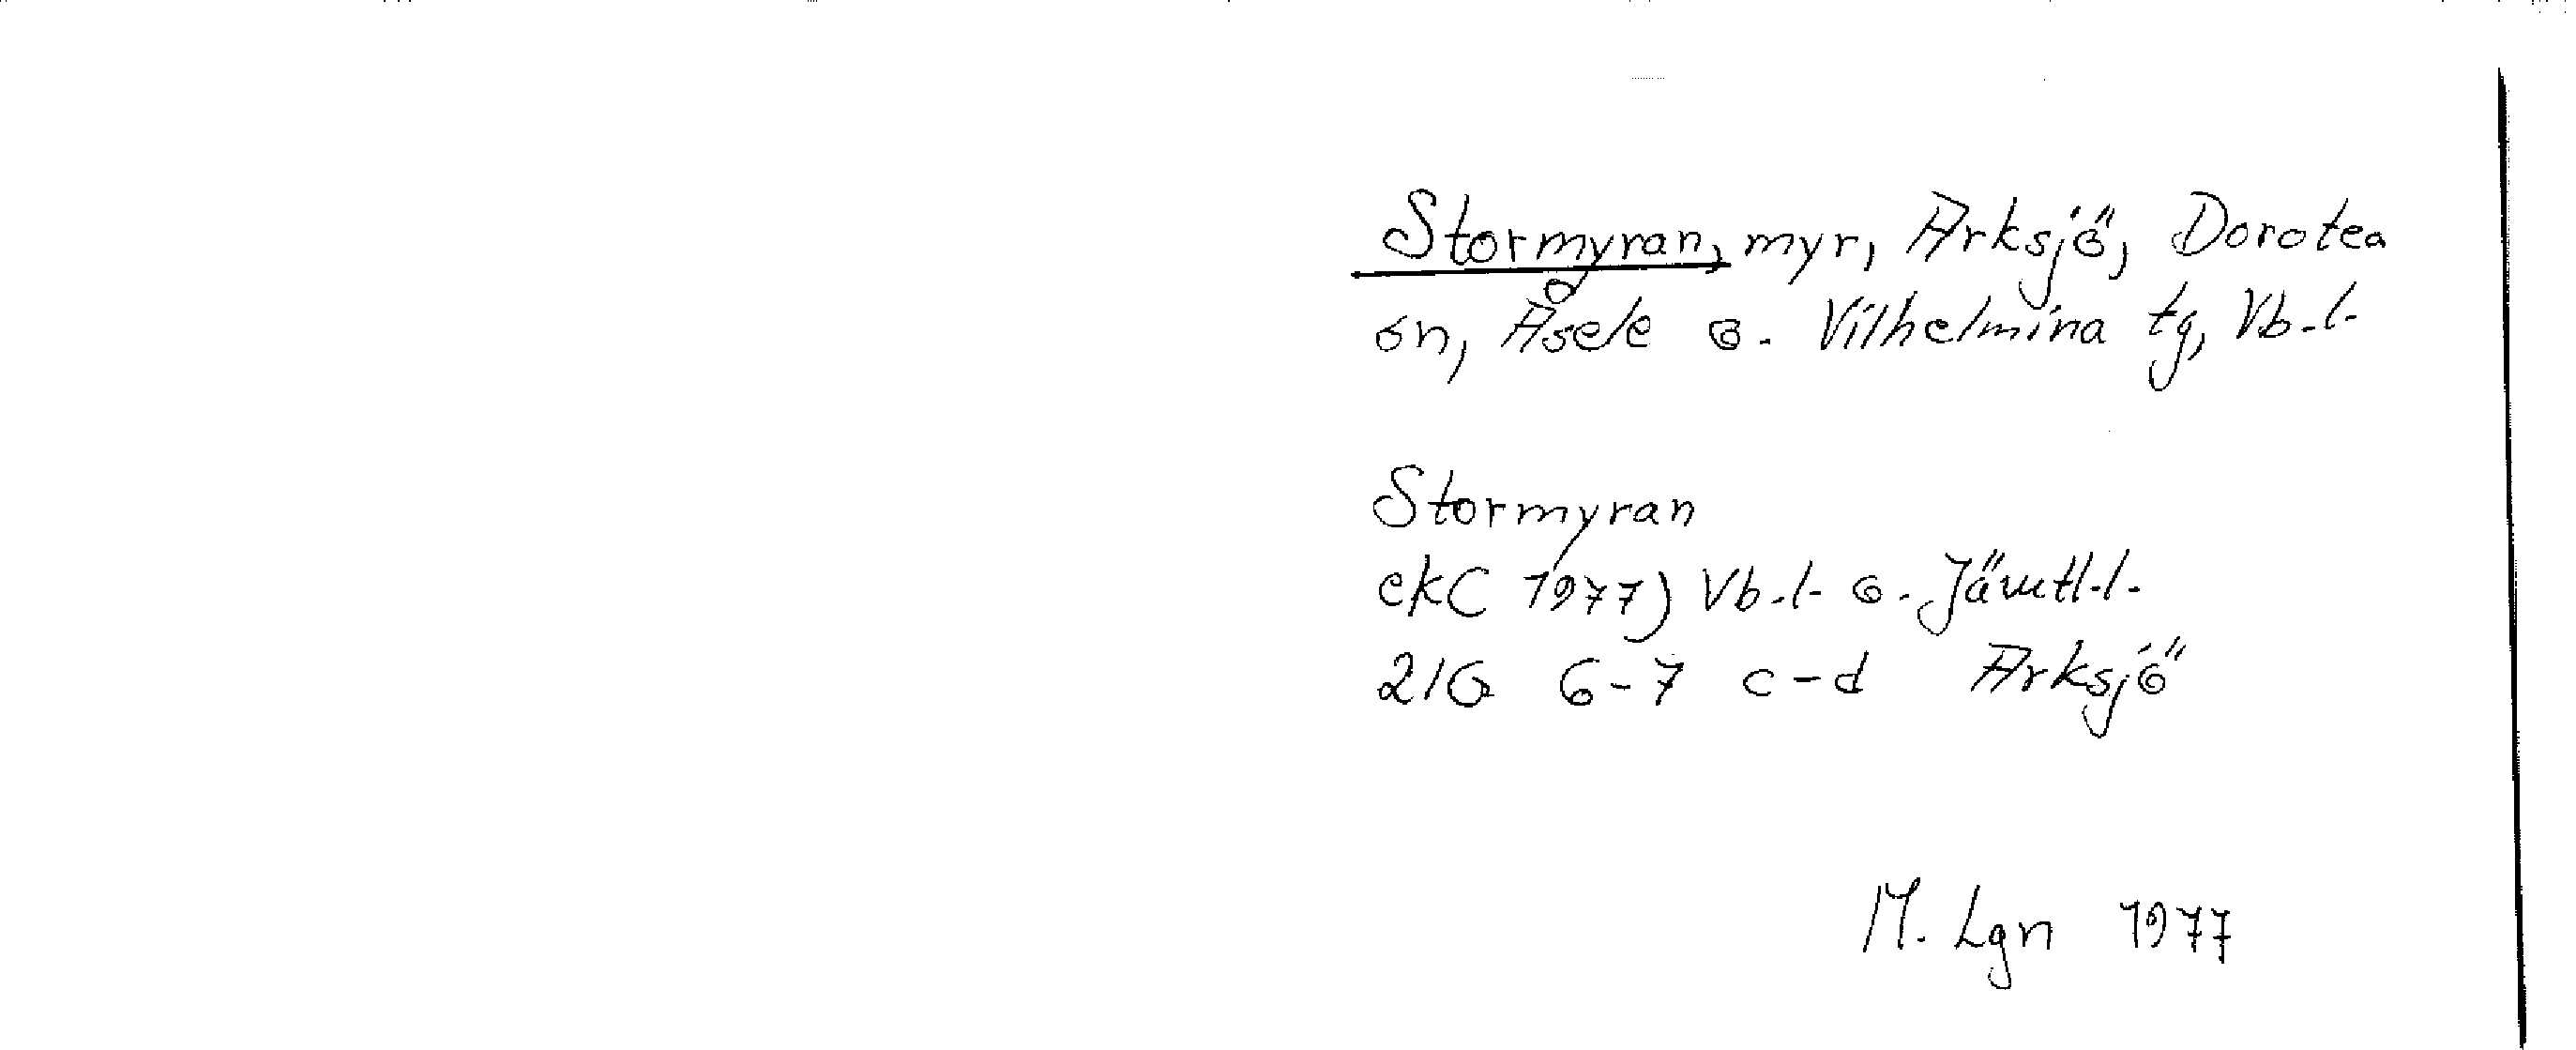 Stormyran, myr, Arksjö, Dorotea
sn, Åsele o. Vilhelmina tg, Vb.l.
Stormyran
ekC 1977) Vb.l. o. Jämtl.l.
21G 6-7 c-d Arksjö
M. Lgn 1977